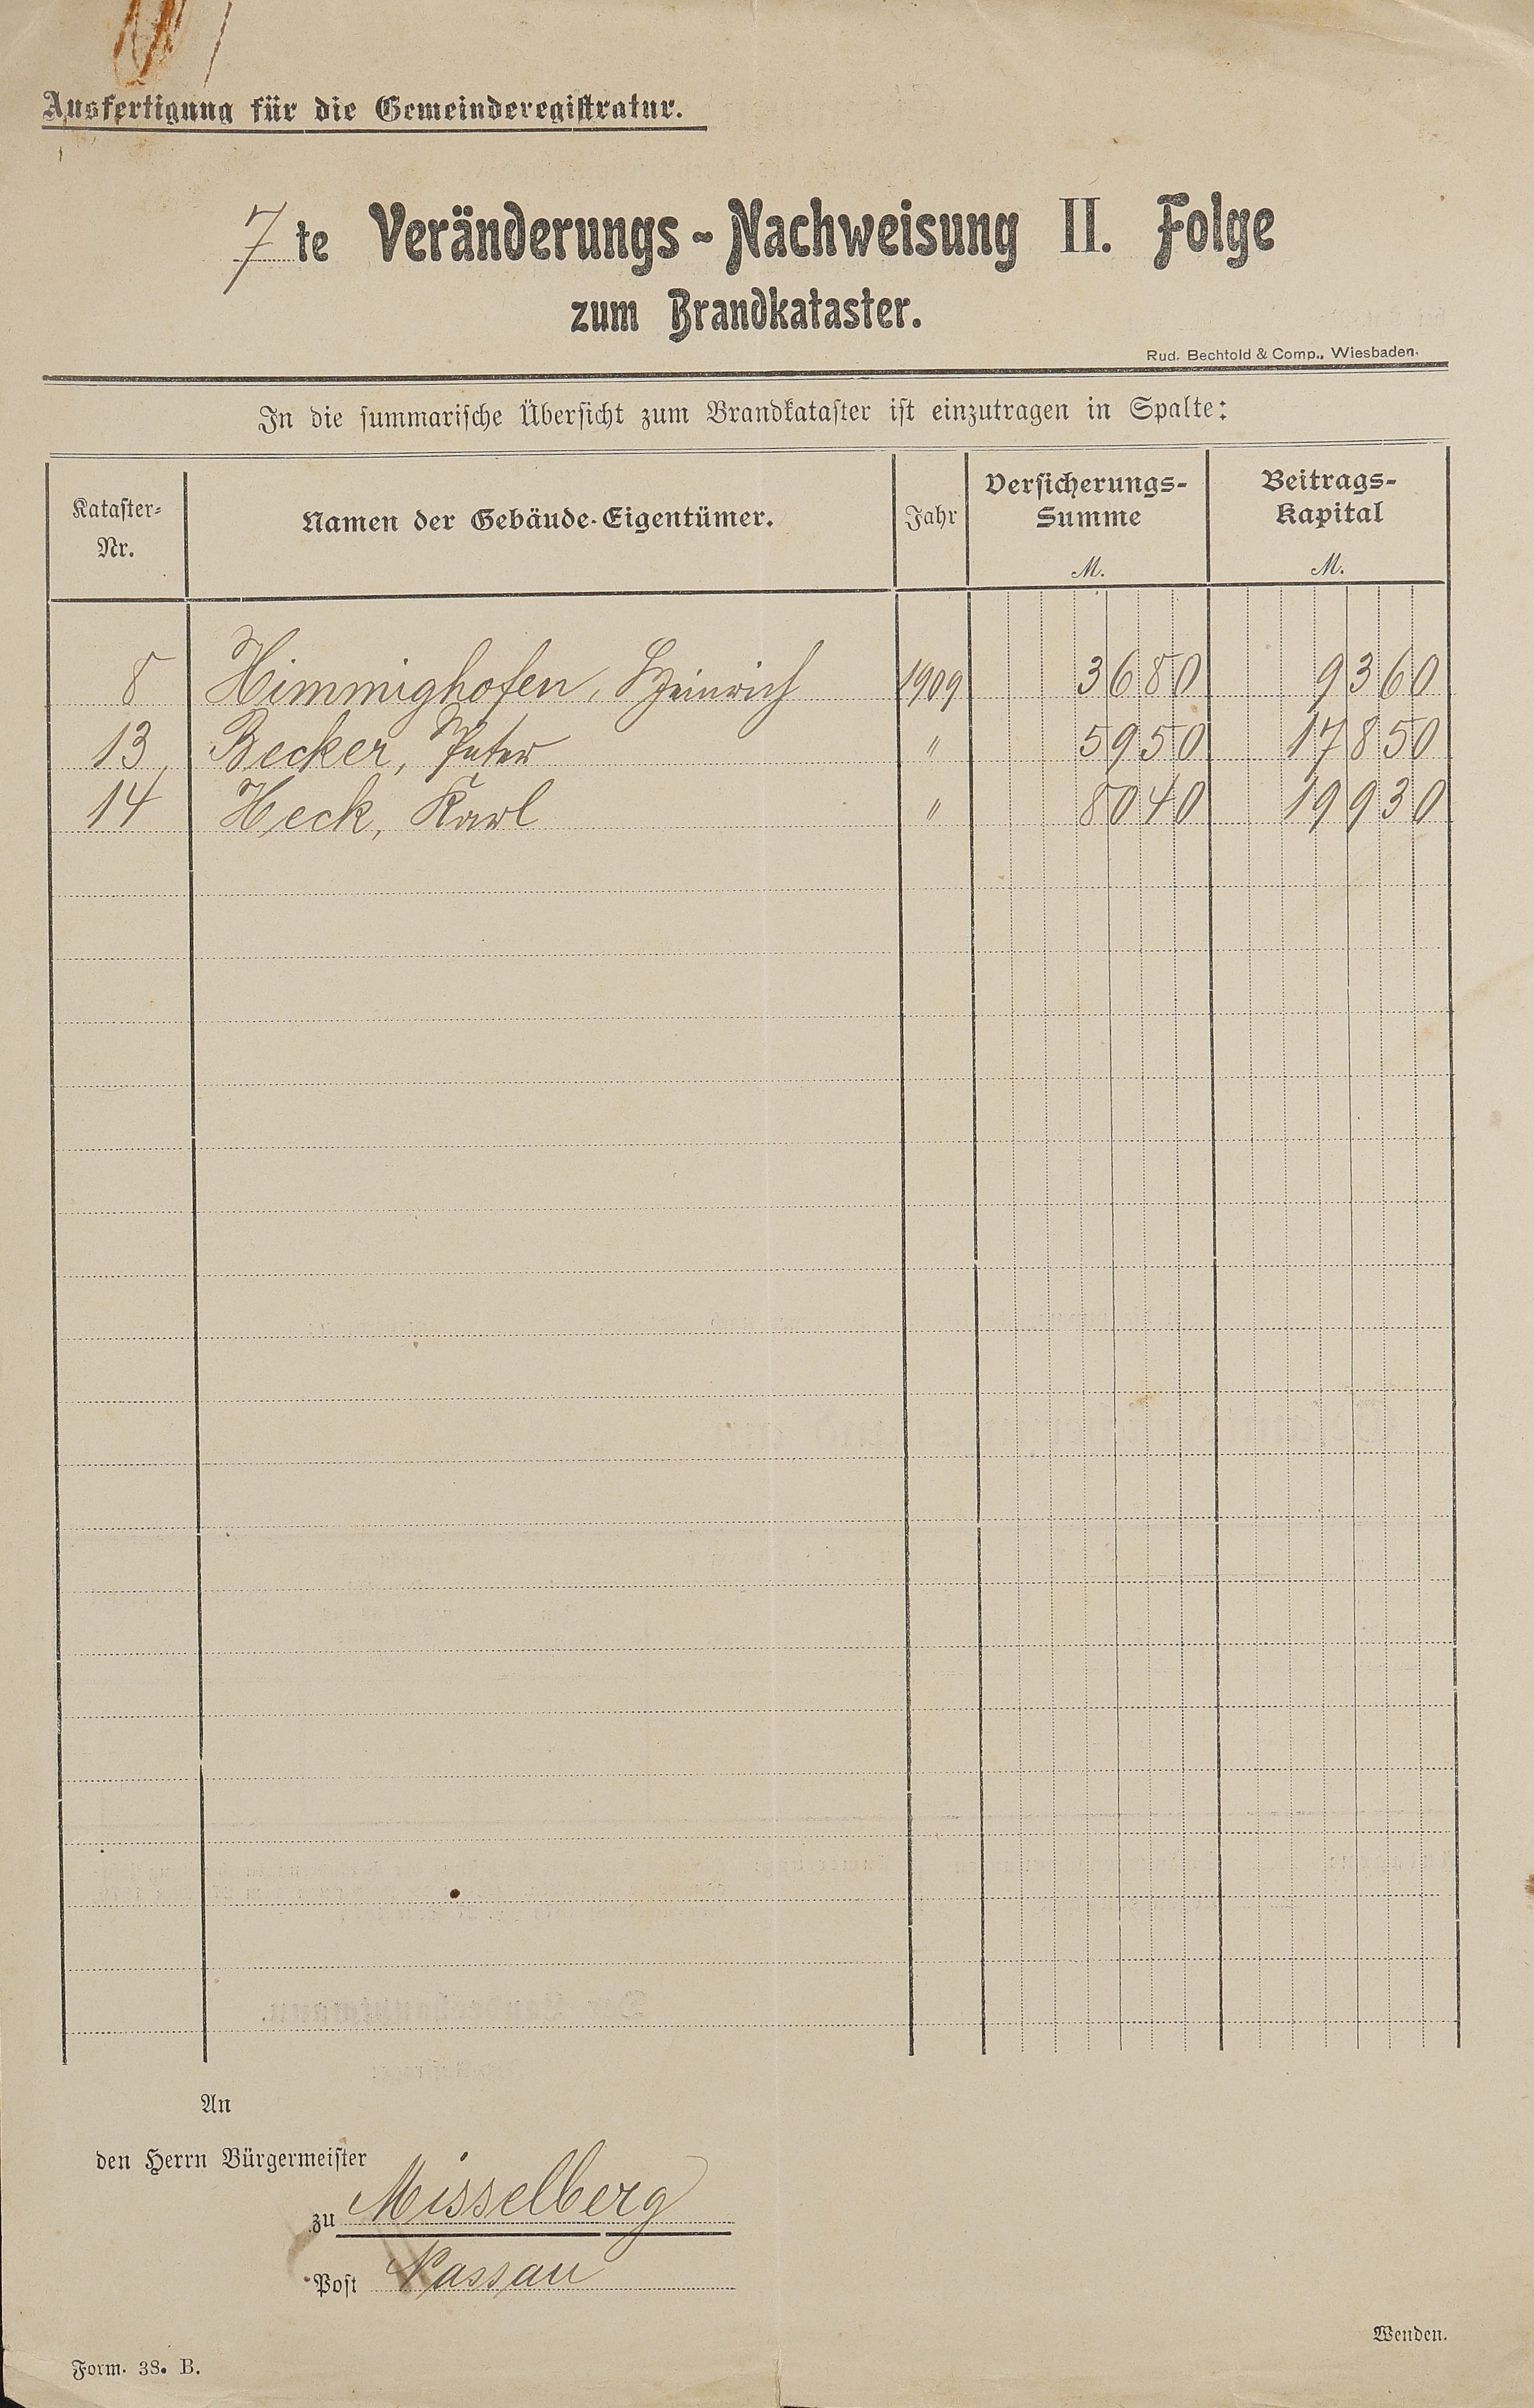 Ausfertigung für die Gemeinderegistratur.
7 te Veränderungs-Nachweisung II. Folge
zum Brandkataster.
Rud. Bechtold & Comp., Wiesbaden.
In die summarische Übersicht zum Brandkataster ist einzutragen in Spalte:
Kataster-Nr. Namen der Gebäude-Eigentümer. Jahr Versicherungs-Summe M. Beitrags-Kapital M.
8 Himmighofen, Heinrich 1909 3680 9360
13 Becker, Peter " 5950 17850
14 Heck, Karl " 8040 19930
An
den Herrn Bürgermeister
zu Misselberg
Post Nassau
Wenden.
Form. 38. B.